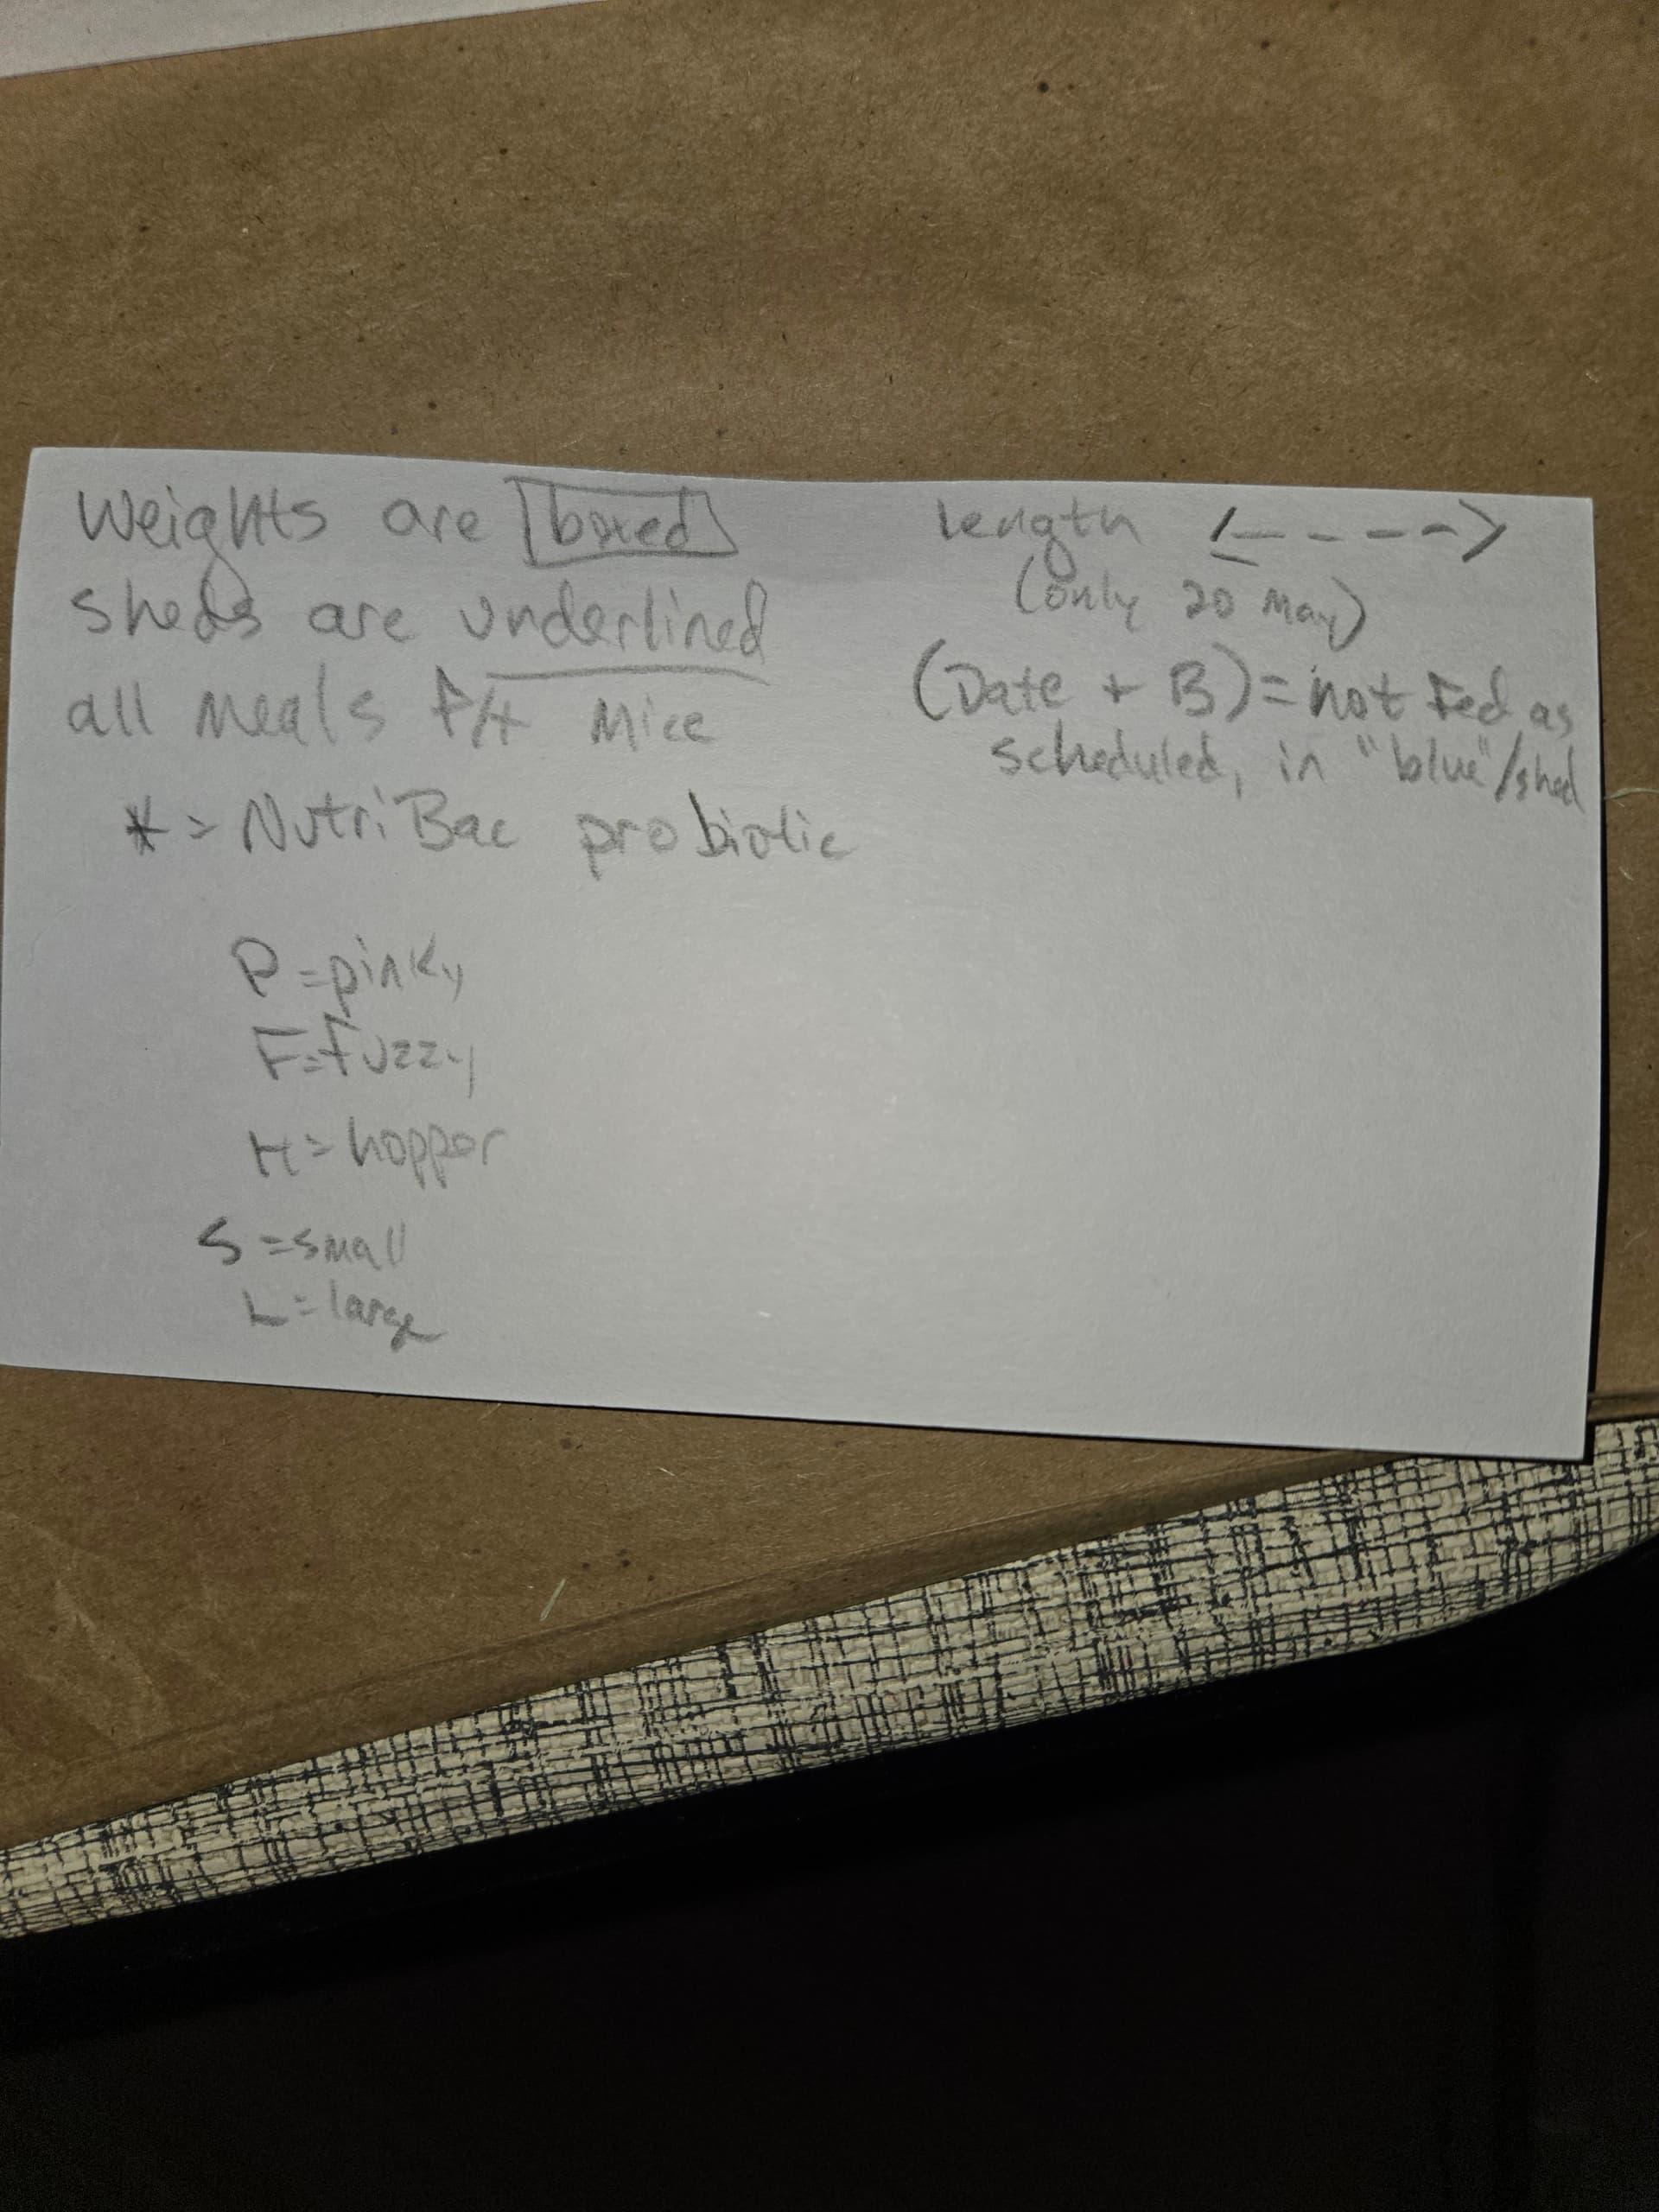 Weights are boxed
sheds are underlined
all meals f/t mice
* = NutriBac probiotic
P = pinky
F = fuzzy
H = hopper
S = small
L = large
Length <- - - - ->
(only 20 May)
(Date + B) = not fed as
scheduled, in "blue"/shed